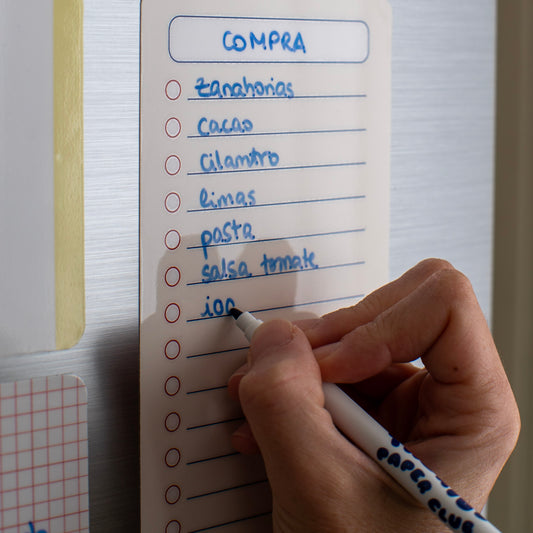 COMPRA
zanahorias
cacao
cilantro
limas
pasta
salsa tomate
PAPER CLUB